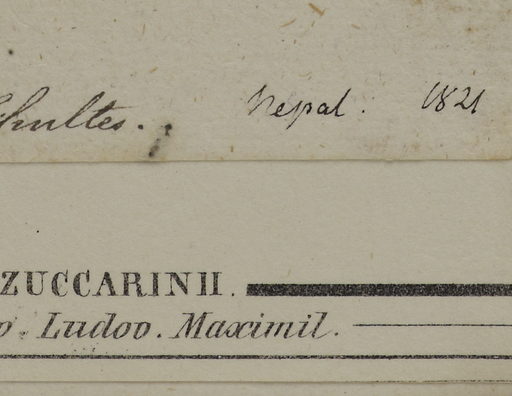 Schultes. Nepal. 1821
ZUCCARINII.
o. Ludov. Maximil.